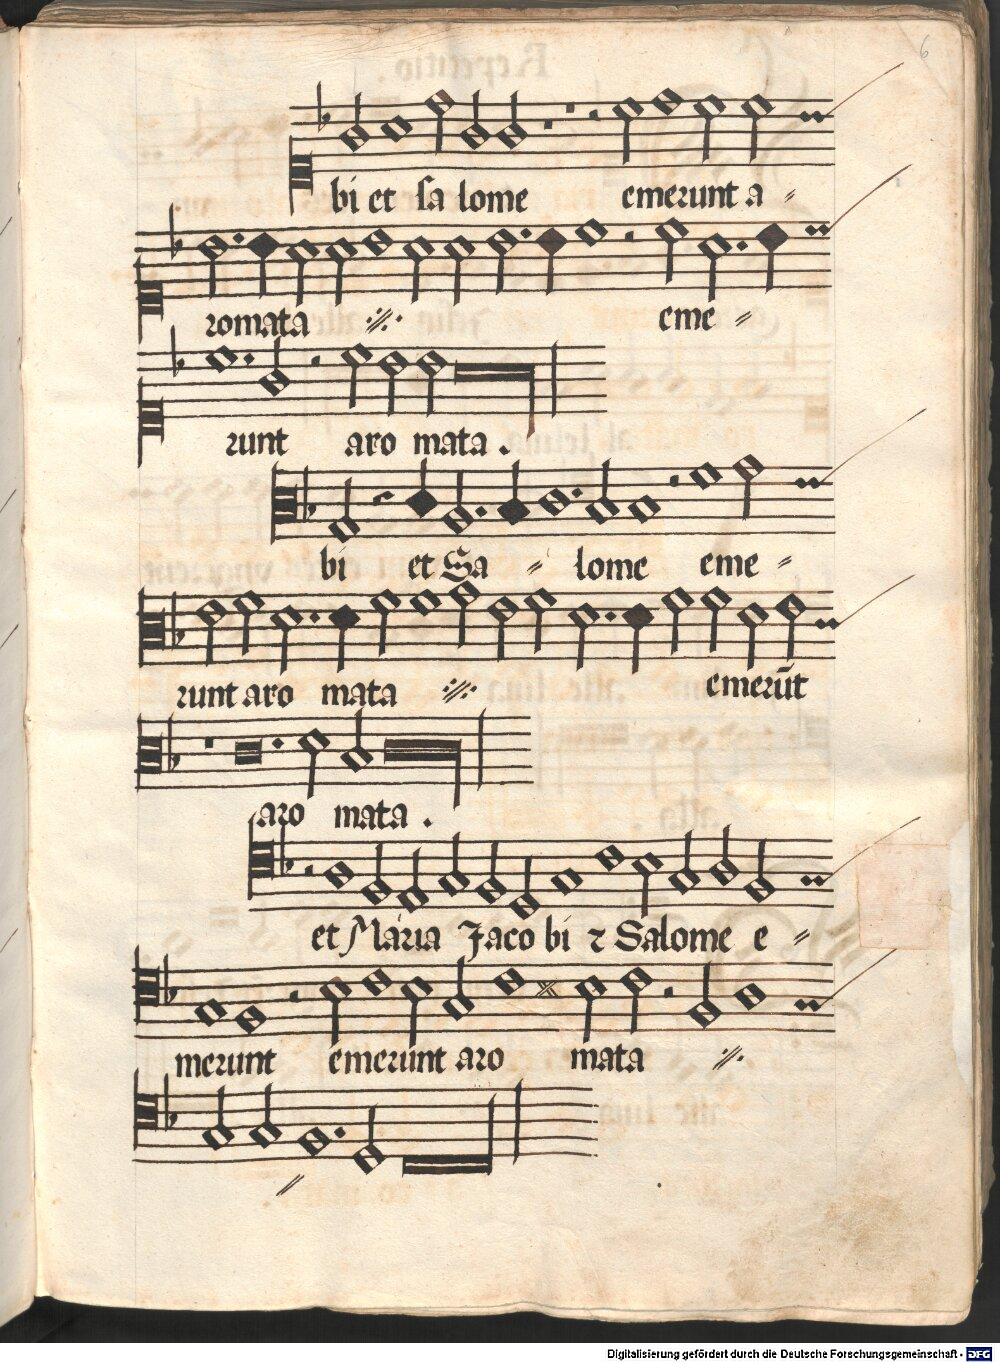 6
bi et sa lome emerunt a -
romata :// : eme =
runt aro mata .
bi et Sa = lome eme =
runt aro mata :// : emerūt
aro mata .
et Maria Jaco bi ꝛ Salome e =
merunt emerunt aro mata :// :
=
Digitalisierung gefördert durch die Deutsche Forschungsgemeinschaft - DFG